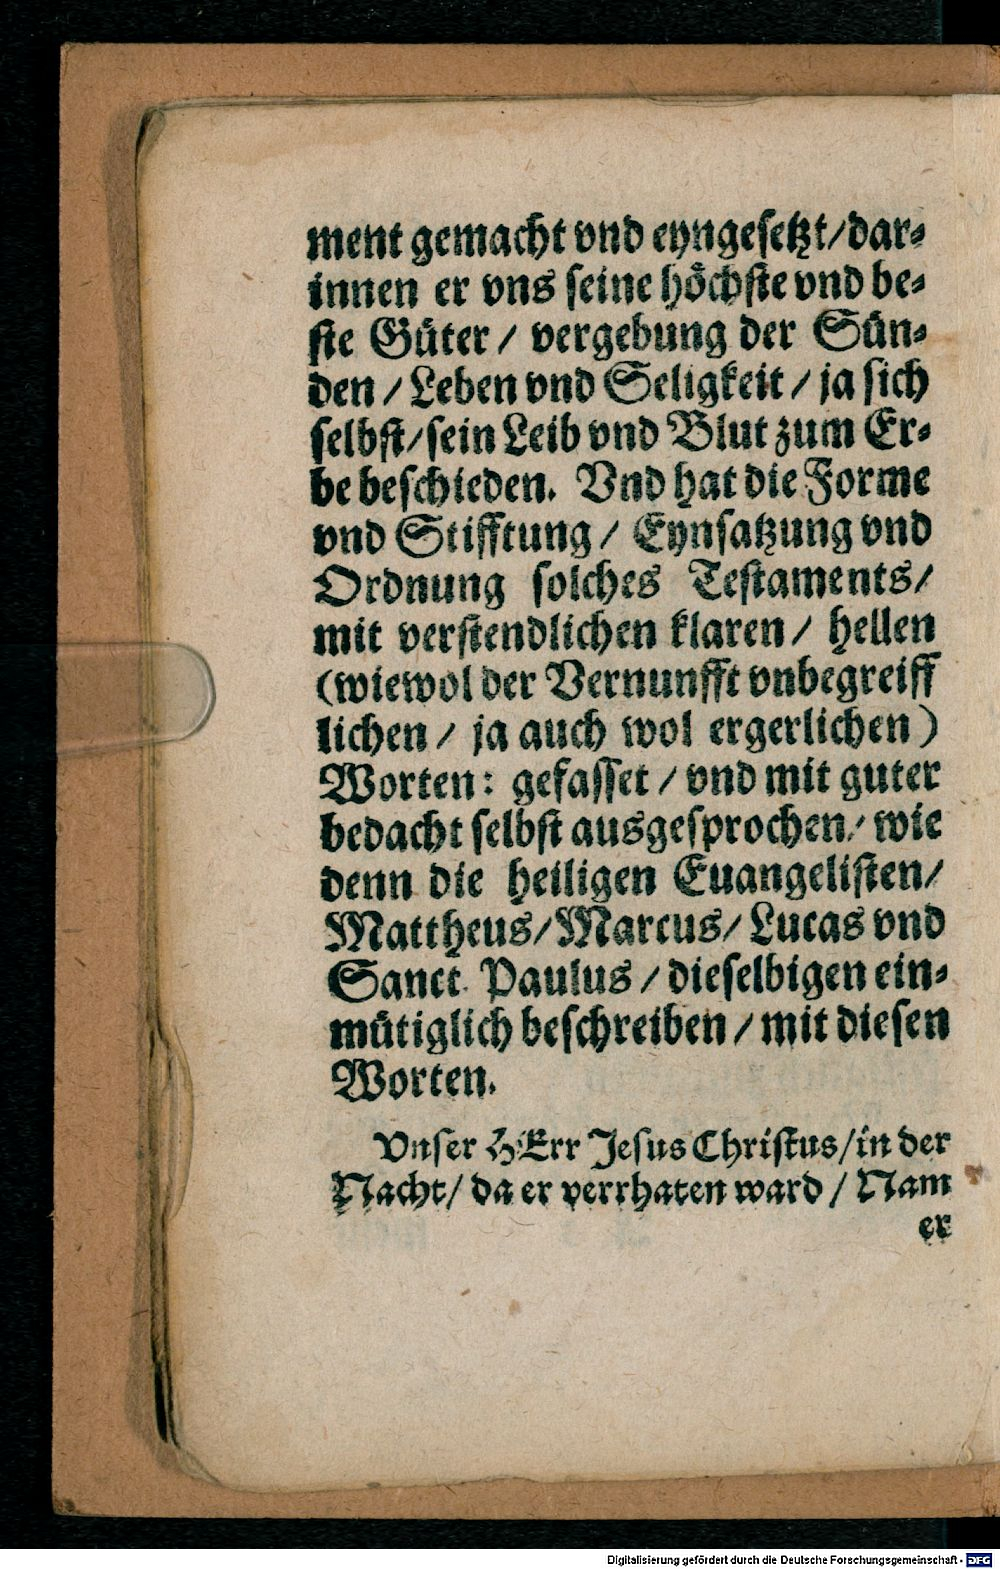 ment gemacht vnd eyngesetzt/dar⸗
innen er vns seine höchste vnd be⸗
ste Güter / vergebung der Sün⸗
den / Leben vnd Seligkeit / ja sich
selbst/sein Leib vnd Blut zum Er⸗
be beschieden. Vnd hat die Forme
vnd Stifftung / Eynsatzung vnd
Ordnung solches Testaments/
mit verstendlichen klaren / hellen
(wiewol der Vernunfft vnbegreiff
lichen / ja auch wol ergerlichen)
Worten: gefasset / vnd mit guter
bedacht selbst ausgesprochen/ wie
denn die heiligen Euangelisten/
Mattheus/Marcus/Lucas vnd
Sanct Paulus / dieselbigen ein⸗
mütiglich beschreiben / mit diesen
Worten.
Vnser HErr Jesus Christus/in der
Nacht/ da er verrhaten ward / Nam
er
Digitalisierung gefördert durch die Deutsche Forschungsgemeinschaft - DFG